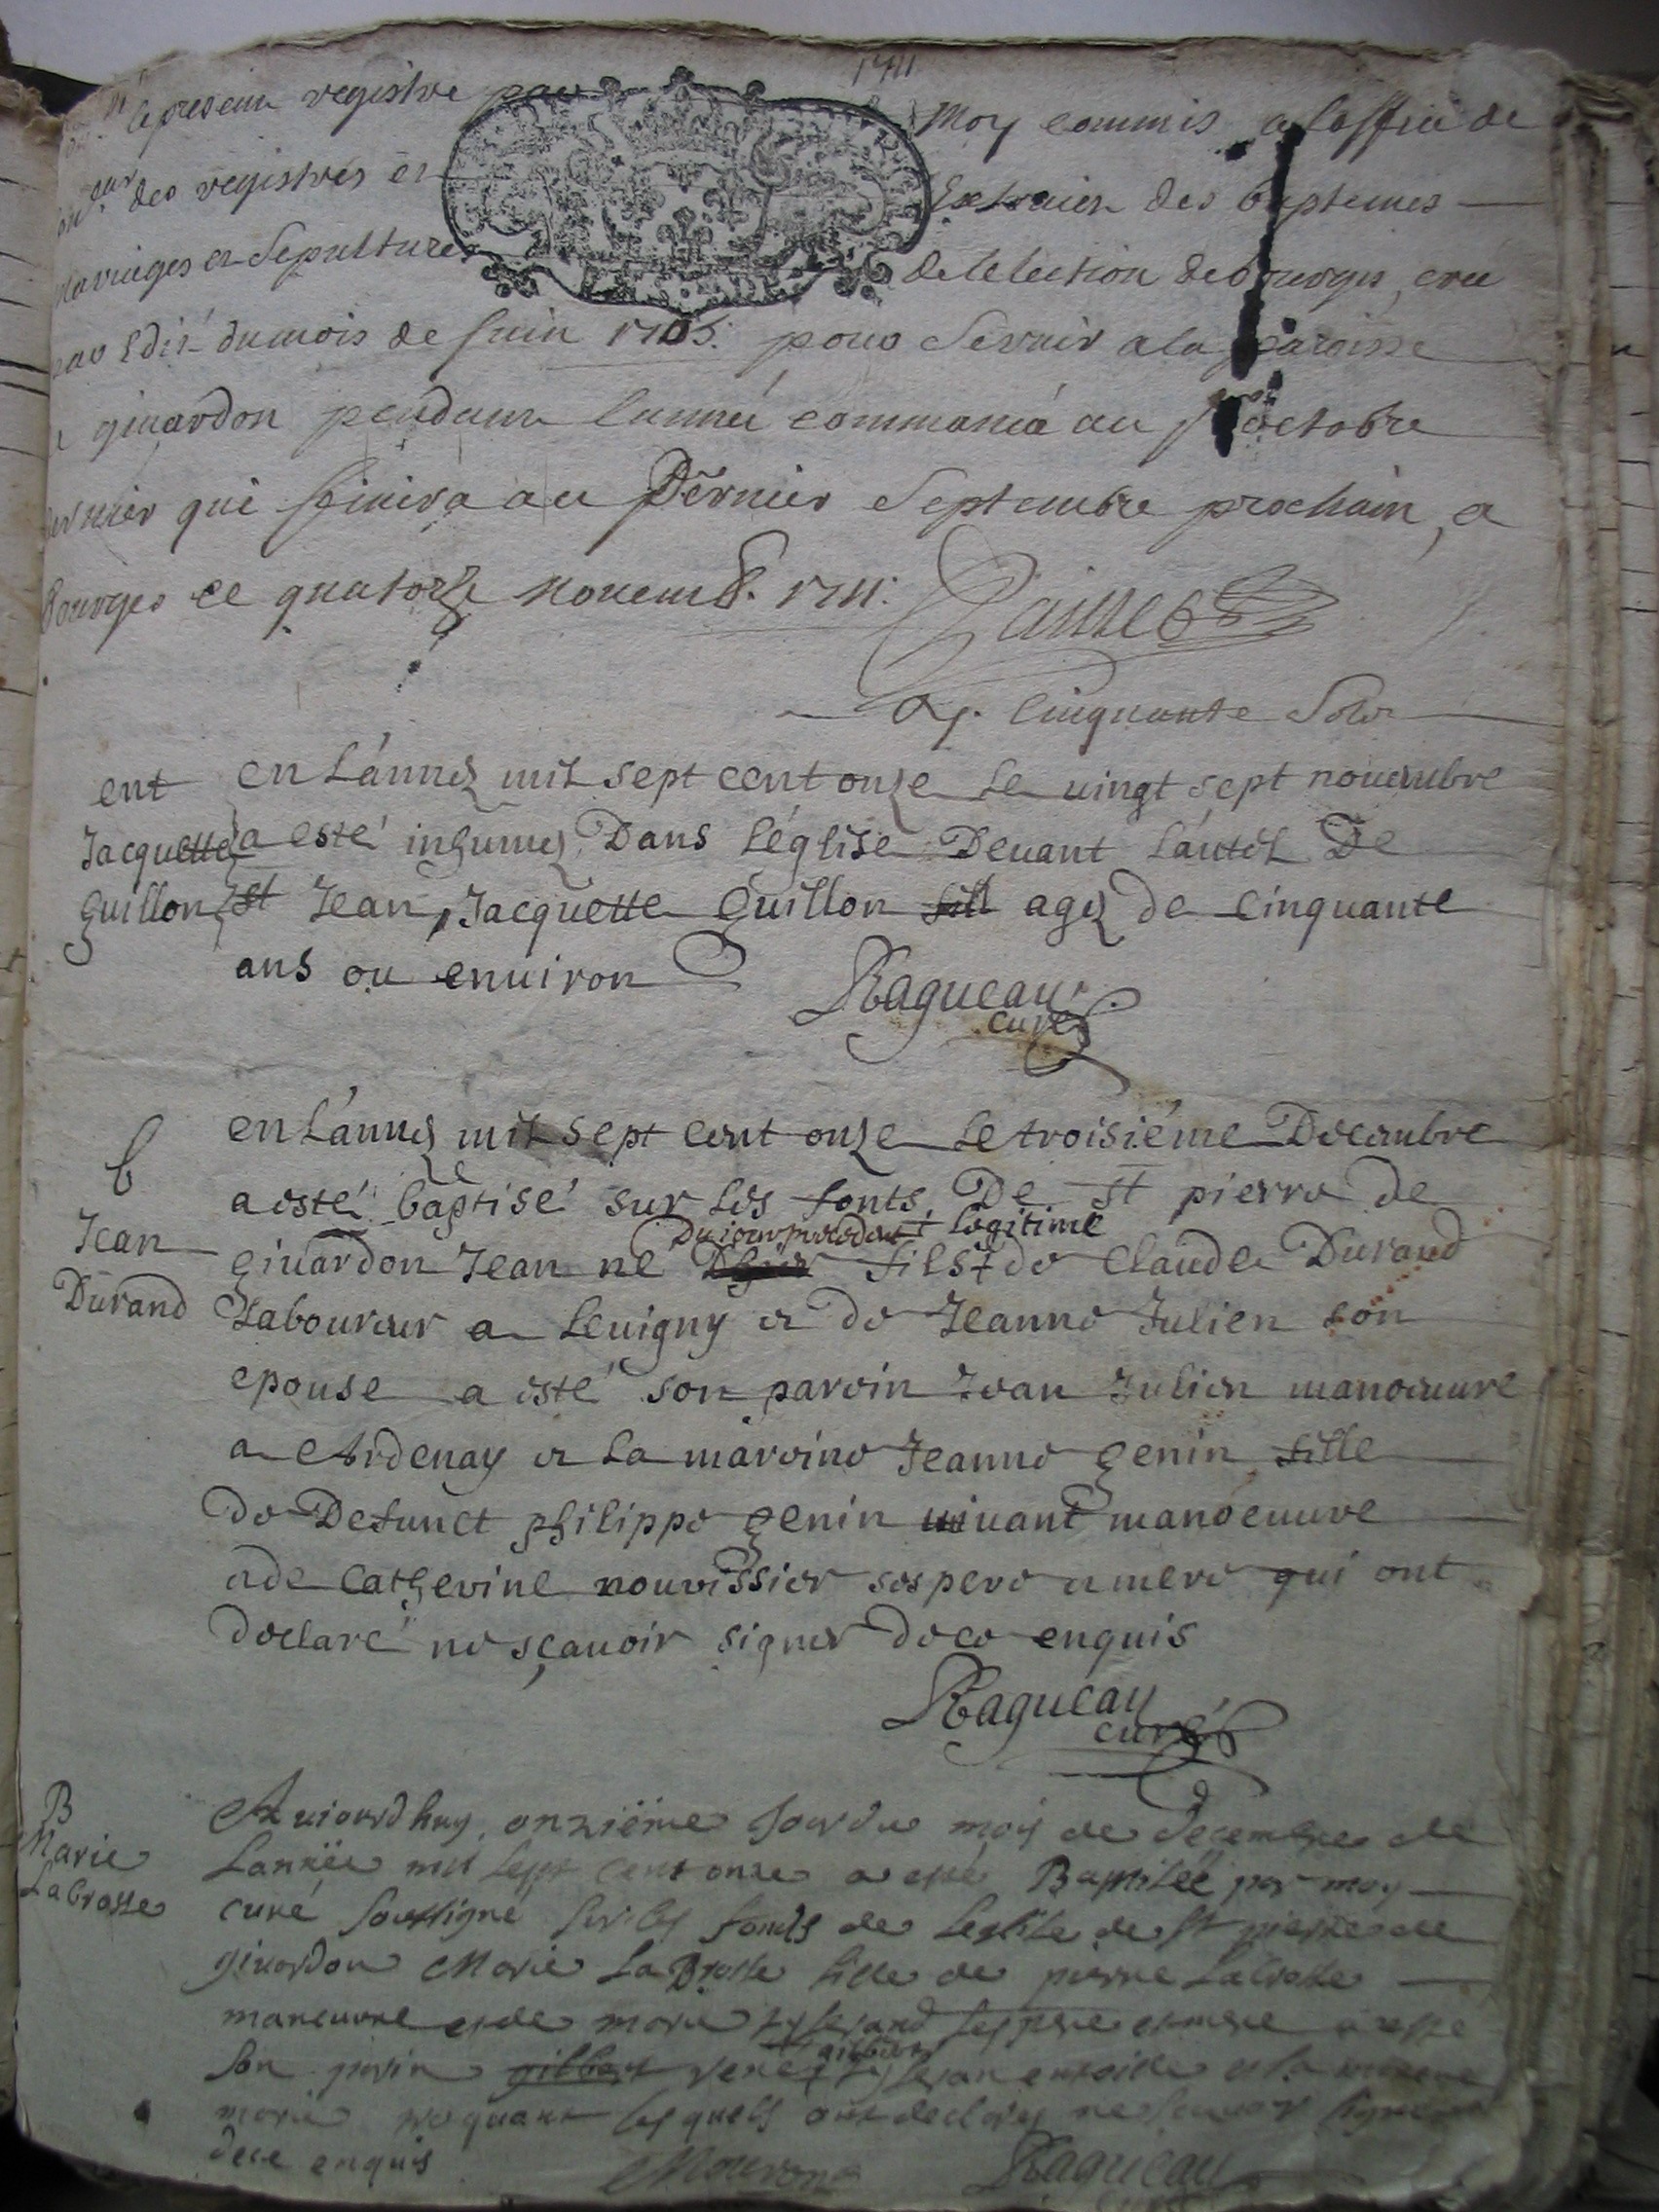 1711
le present registre par moy commis a loffice de
des registres et Extraict des baptemes
mariages et Sepultures de lelection de bourges, cree
par Edit du mois de Juin 1705. pour servir a la paroisse
givardon pendant lannée commancé au pr octobre
dernier qui finira au Dernier Septembre prochain, a
Bourges ce quatorze novemb. 1711.
cinquante sols
en Lánneé mil sept cent onze le vingt sept novembre
ent
a esté inhumeé Dans léglise Devant láutel De
Jacquette
St Jean, Jacquette Guillon fill ageé de cinquante
Guillon
ans ou environ
Ragueau
curé
en Lánneé mil sept cent onze le troisiéme Decembre
b
a esté baptisé sur les fonts De St pierre de
Du jour precedent legitime
Jean
givardon Jean né fils de Claude Durand
Durand
Laboureur a Levigny et de Jeanne Julien son
epouse a esté son parein Jean Julien manoeuvre
a Ardenay et la mareine Jeanne Genin fille
de Defunct philippe Genin vivant manoeuvre
et de Catherine nourissier ses pere et mere qui ont
declaré ne sçavoir signer de ce enquis
Ragueau
curé
B
Aujourdhuy onziéme Jour du mois de decembre de
Marie
Lannée mil sept cent onze a esté Baptiseé par moy
Labrosse
curé soussigné sur les fonds de leglise de st pierre de
givardon Marie La Brosse fille de pierre Labrosse
maneuvre et de marie ses pere et mere a esté
gilbert
son parin gilbert et la mareine
marie lesquels ont declarez ne scavoir signer
de ce enquis
Ragueau